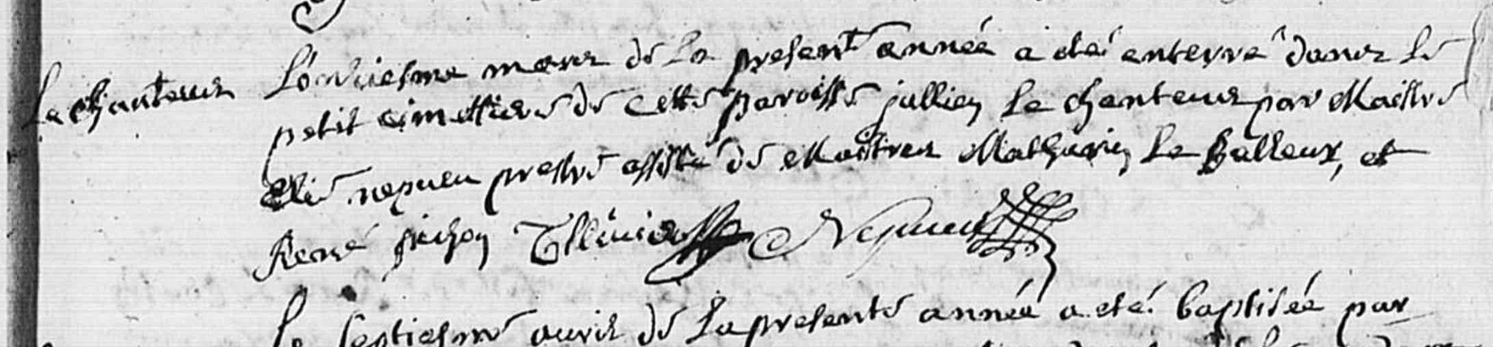 le Chanteur
L'onziesme mars de la presente année a eté enterré dans le
petit cimettiere de cette paroisse jullien le chanteur par Maistre
Elie nepueu prestre assisté de Maistres Mathurin le Belleux, et
René
Nepueu
le septiesme auril de la presente année a eté baptisée par